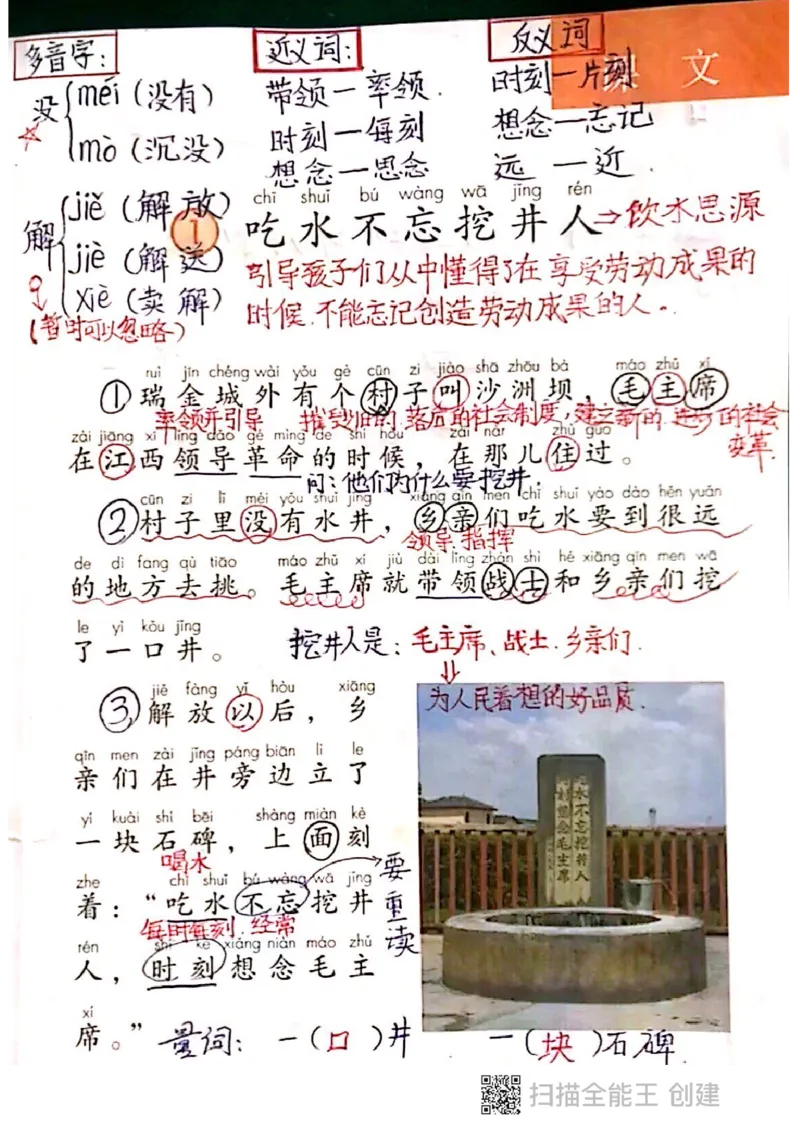 多音字：
近义词：
反义词
没
méi（没有）
mò（沉没）
带领—率领.
时刻—每刻
想念—思念
时刻—片刻
想念—忘记
远 — 近.
课 文
解
jiě（解放）
jiè（解送）
xiè（卖解）
（暂时可以忽略）
1
chī shuǐ bú wàng wā jǐng rén
吃水不忘挖井人→饮水思源
引导孩子们从中懂得了在享受劳动成果的
时候.不能忘记创造劳动成果的人。
ruì jīn chéng wài yǒu gè cūn zi jiào shā zhōu bà máo zhǔ xí
①瑞金城外有个村子叫沙洲坝，毛主席
率领并引导 推翻旧的.落后的社会制度，建立新的.进步的社会
变革.
zài jiāng xī lǐng dǎo gé mìng de shí hou zài nàr zhù guo
在江西领导革命的时候，在那儿住过。
问：他们为什么要挖井.
cūn zi lǐ méi yǒu shuǐ jǐng xiāng qīn men chī shuǐ yào dào hěn yuǎn
②村子里没有水井，乡亲们吃水要到很远
领导 指挥
de dì fang qù tiāo máo zhǔ xí jiù dài lǐng zhàn shì hé xiāng qīn men wā
的地方去挑。毛主席就带领战士和乡亲们挖
le yì kǒu jǐng
了一口井。
挖井人是：毛主席、战士.乡亲们.
为人民着想的好品质.
jiě fàng yǐ hòu xiāng
③解放以后，乡
qīn men zài jǐng páng biān lì le
亲们在井旁边立了
yí kuài shí bēi shàng miàn kè
一块石碑，上面刻
喝水
zhe chī shuǐ bú wàng wā jǐng
着：“吃水不忘挖井
要重读
每时每刻.经常
rén shí kè xiǎng niàn máo zhǔ
人，时刻想念毛主
xí
席。”
吃水不忘挖井人
时刻想念毛主席
量词：一（口）井 一（块）石碑.
扫描全能王 创建